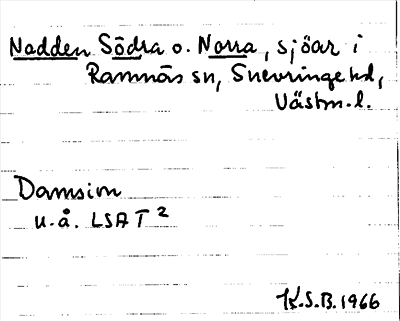 Nadden Södra o. Norra, sjöar i
Ramnäs sn, Snevringe hd,
Västm.l.
Damsin
u.å. LSA T 2
K.S.B. 1966